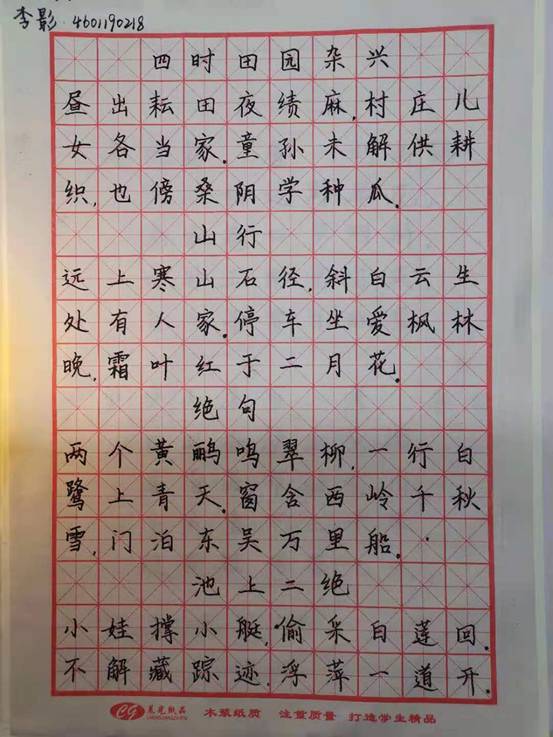 李影 4601190218
四时田园杂兴
昼出耘田夜绩麻,村庄儿
女各当家.童孙未解供耕
织,也傍桑阴学种瓜.
山行
远上寒山石径,斜白云生
处有人家.停车坐爱枫林
晚,霜叶红于二月花.
绝句
两个黄鹂鸣翠柳,一行白
鹭上青天.窗含西岭千秋
雪,门泊东吴万里船.
池上二绝
小娃撑小艇,偷采白莲回.
不解藏踪迹.浮萍一道开.
CG 晨光纸品 木浆纸质 注重质量 打造学生精品